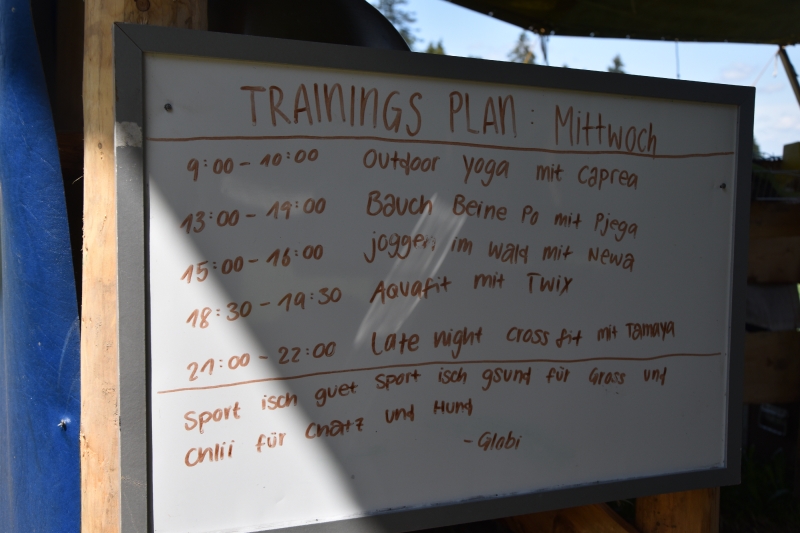 TRAININGS PLAN : Mittwoch
9:00 - 10:00 Outdoor Yoga mit Caprea
13:00 - 19:00 Bauch Beine Po mit Pjega
15:00 - 16:00 joggen im Wald mit Newa
18:30 - 19:30 Aquafit mit Twix
21:00 - 22:00 Late night cross fit mit Tamaya
Sport isch guet Sport isch gsund für Gross und
Chlii für Chatz und Hund
- Globi